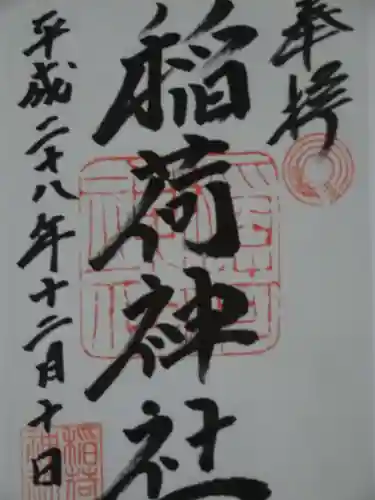 奉拝
稲荷神社
平成二十八年十二月十日
稲荷
神社